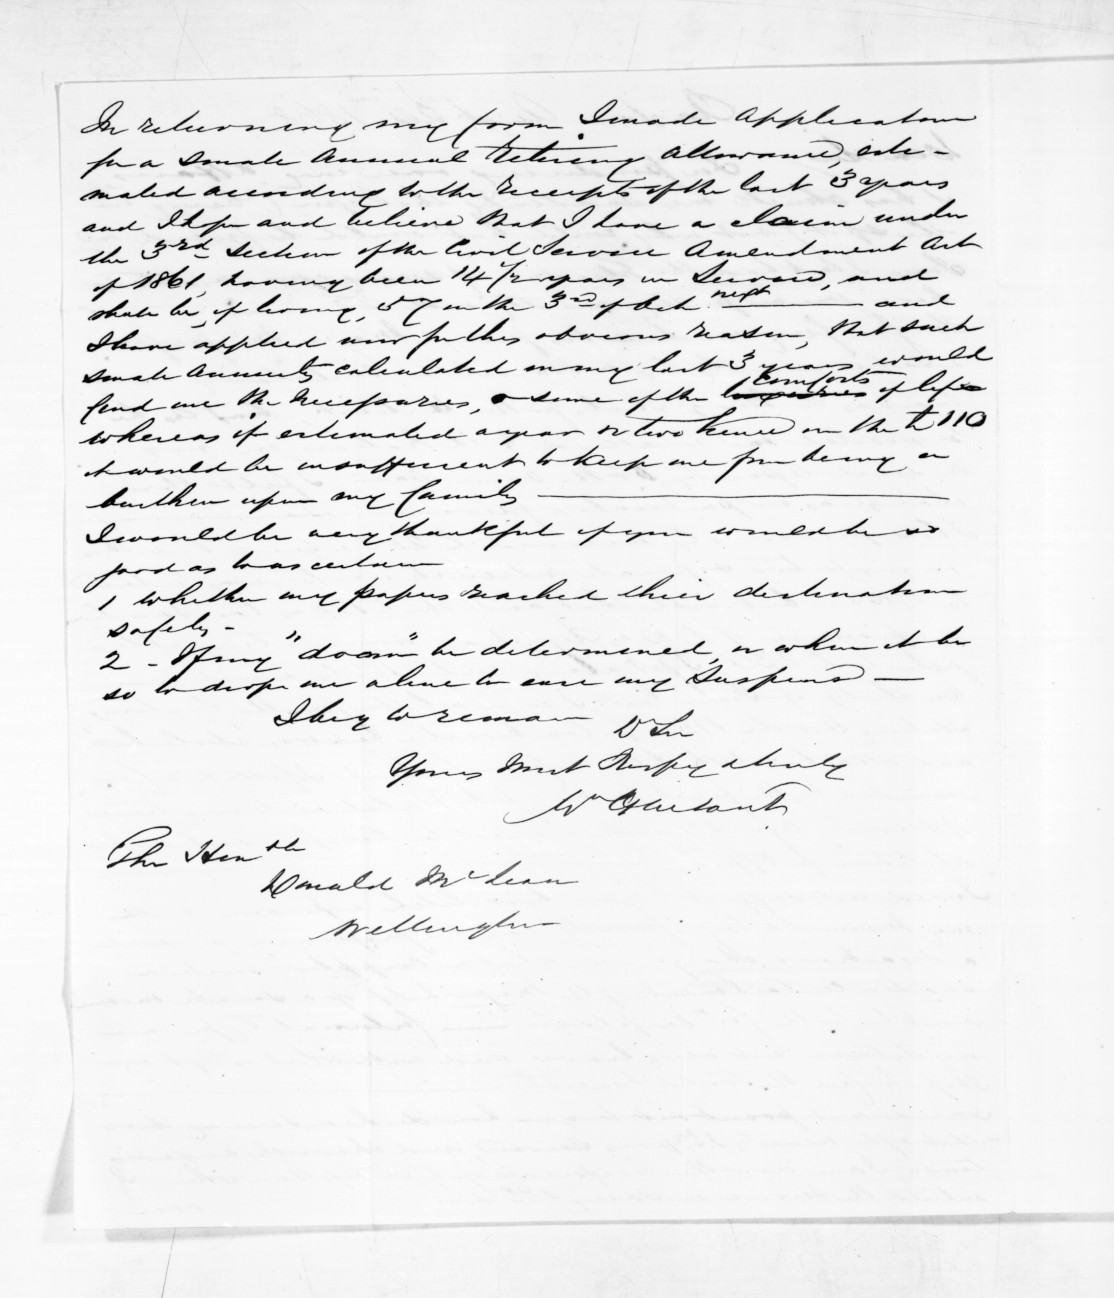 In returning my form I made Application
for a small Annual Retiring Allowance, esti-
mated according to the receipts of the last 3 years
and I hope and believe that I have a claim under
the 3rd Section of the Civil Service Amendment Act
of 1861, having been 14 1/2 years in Service, and
shall be, if living, 57 on the 3rd of Oct. next and
I have applied now for this obvious reason, that such
small Annuity calculated on my last 3 years would
find me the necessaries, or some of the comforts of life
whereas if estimated a year or two hence on the £110
it would be insufficient to keep me from being a
burthen upon my family
I would be very thankful if you would be so
good as to ascertain
1 whether my papers reached their destination
safely -
2 - If my "doom" be determined, or when it be
so to drop me a line to ease my suspense —
I beg to remain Dr Sir
Yours Most Respectfully
Wm
The Honble
Donald McLean
Wellington